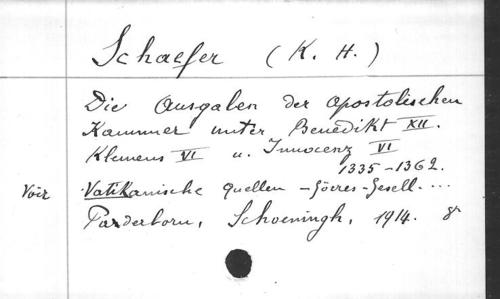 Schaefer (K. H.)
Die Ausgaben der apostolischen
Kammer unter Benedikt XII.
Klemens VI u. Innocenz VI
1335-1362.
Voir Vatikanische quellen - Görres-Gesell. ...
Parderborn, Schoeningh, 1914. 8°